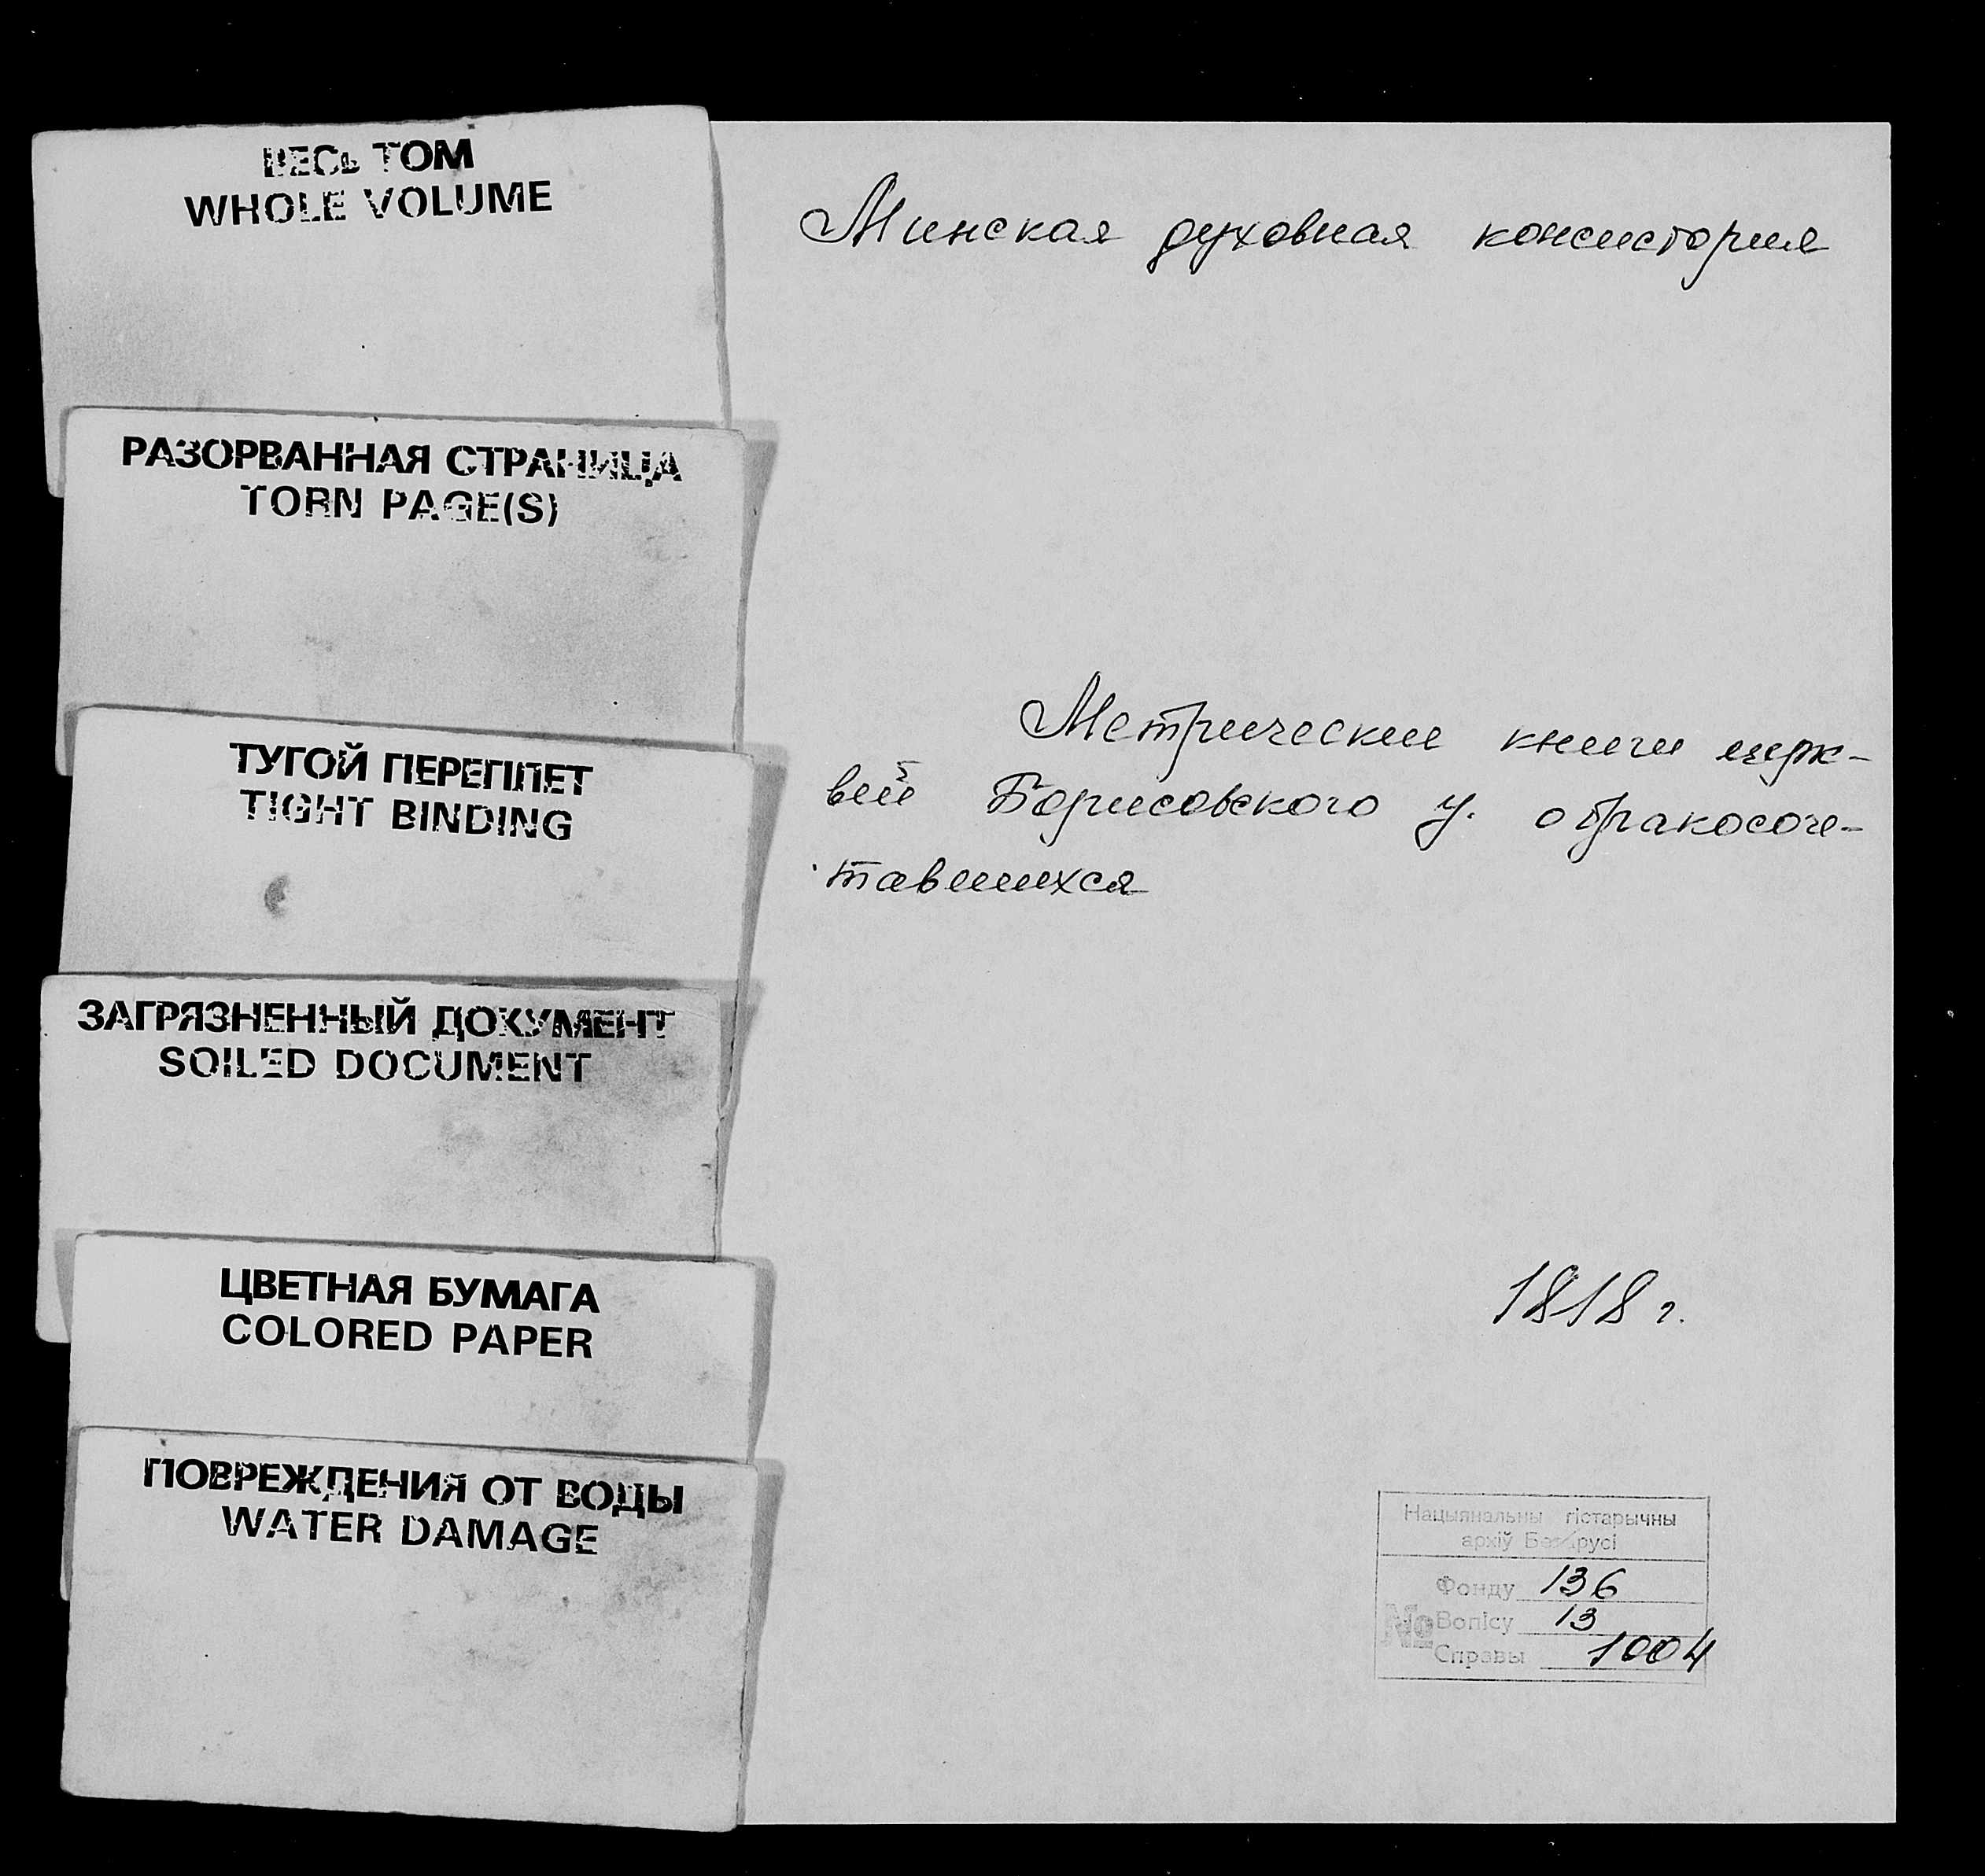 ВЕСЬ ТОМ
WHOLE VOLUME
РАЗОРВАННАЯ СТРАНИЦА
TORN PAGE(S)
ТУГОЙ ПЕРЕПЛЕТ
TIGHT BINDING
ЗАГРЯЗНЕННЫЙ ДОКУМЕНТ
SOILED DOCUMENT
ЦВЕТНАЯ БУМАГА
COLORED PAPER
ПОВРЕЖДЕНИЯ ОТ ВОДЫ
WATER DAMAGE
Минская духовная консистория
Метрические книги церк-
вей Борисовского у. о бракосоче-
тавшихся
1818 г.
Нацыянальны гістарычны
архіў Беларусі
Фонду 136
№ Вопісу 13
Справы 1004